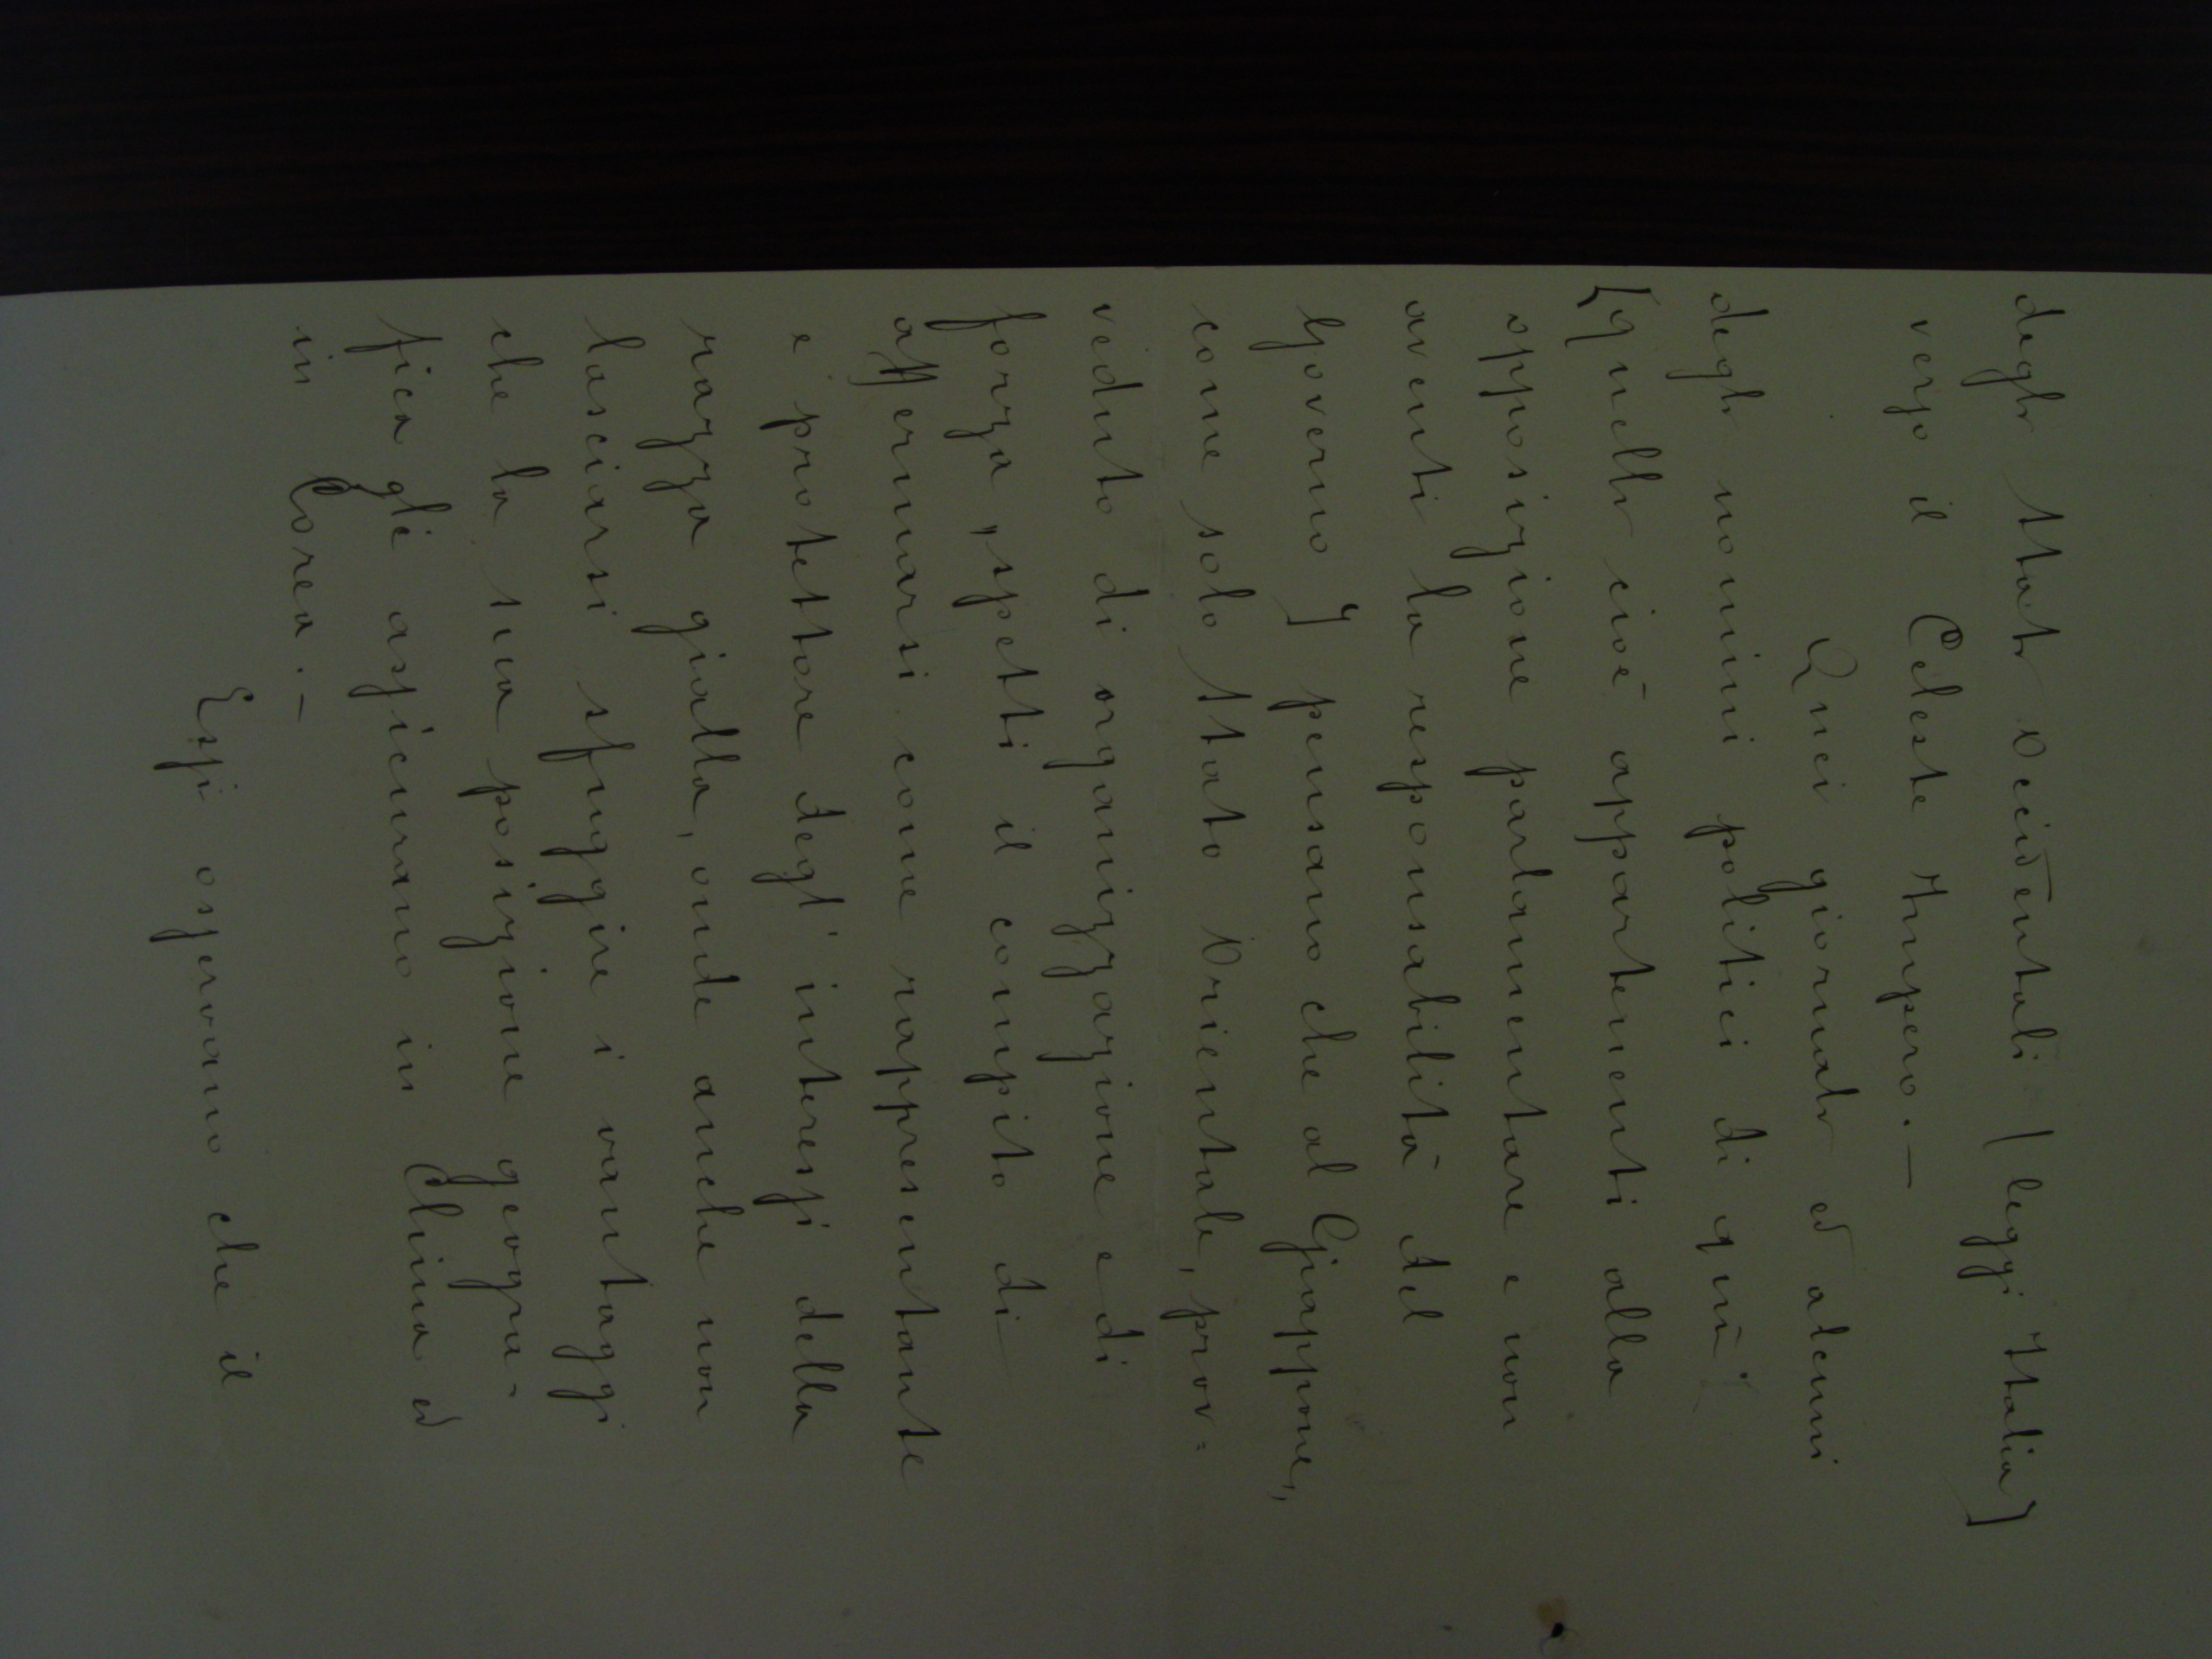 degli Stati Occidentali (leggi Italia)
verso il Celeste Impero. —
Quei giornali ed alcuni
degli uomini politici di quì
[quelli cioè appartenenti alla
opposizione parlamentare e non
aventi la responsabilità del
Governo] pensano che al Giappone,
come solo Stato Orientale, prov=
veduto di organizzazione e di
forza, spetti il compito di
affermarsi come rappresentante
e protettore degl' interessi della
razza gialla, onde anche non
lasciarsi sfuggire i vantaggi
che la sua posizione geogra-
fica gli assicurano in China ed
in Corea. —
Essi osservano che il